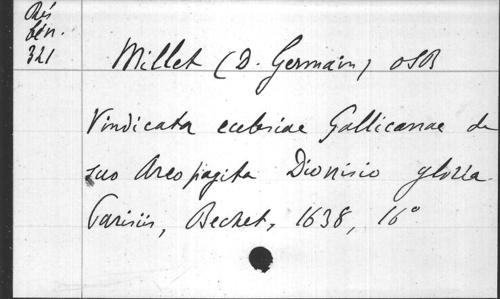 Rés
321
Millet (D. Germain) OSB
Vindicata ecclesiae Gallicanae de
suo Areopagita Dionisio gloria.
Parisiis, Bechet, 1638, 16°